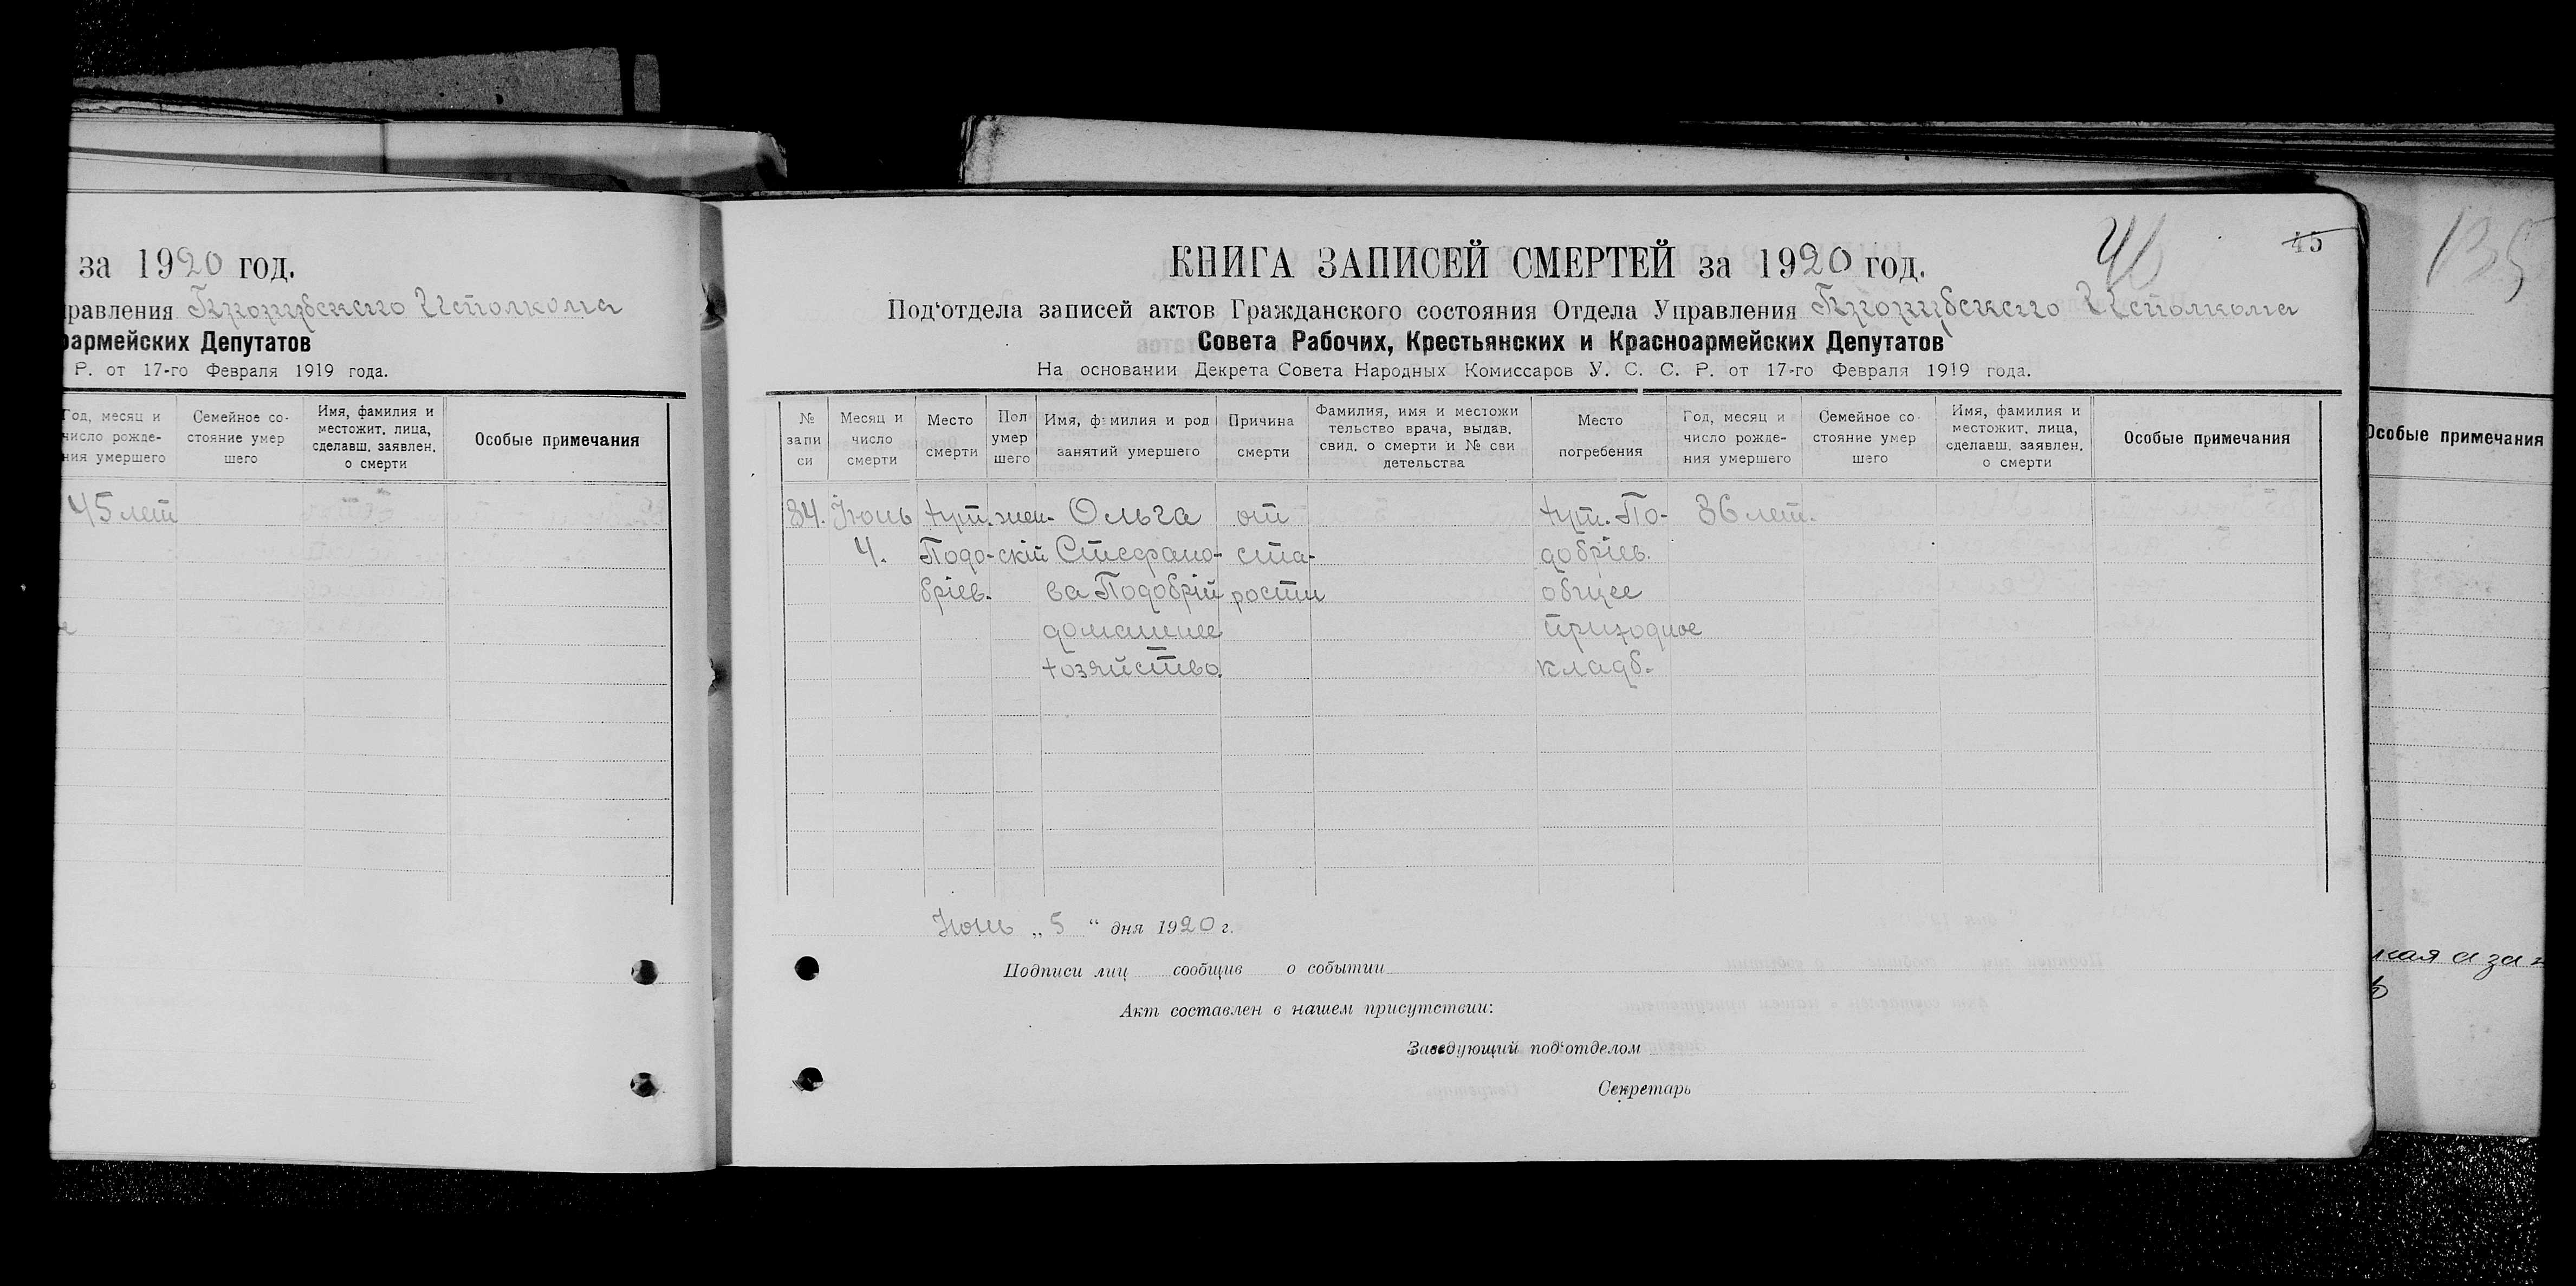 за 1920 год.
правления Исполкома
рармейских Депутатов
Р. от 17-го Февраля 1919 года.
Год, месяц и число рожде-ния умершего
Семейное со-стояние умер шего
Имя, фамилия и местожит. лица, сделавш. заявлен. о смерти
Особые примечания
45 лет
46
45
КНИГА ЗАПИСЕЙ СМЕРТЕЙ за 1920 год.
Под‘отдела записей актов Гражданского состояния Отдела Управления Исполкома
Совета Рабочих, Крестьянских и Красноармейских Депутатов
На основании Декрета Совета Народных Комиссаров У. С. С. Р. от 17-го Февраля 1919 года.
№ запи си
Месяц и число смерти
Место смерти
Пол умер шего
Имя, фамилия и род занятий умершего
Причина смерти
Фамилия, имя и местожи тельство врача, выдав. свид. о смерти и № сви детельства
Место погребения
Год, месяц и число рожде-ния умершего
Семейное со стояние умер шего
Имя, фамилия и местожит. лица, сделавш. заявлен. о смерти
Особые примечания
34. Июнь хут. жен- Ольга от хут. По- 36 лет.
4. Подо- скій Стефано- ста- добріев.
бріев. ва Подобрій рости общее
домашнее приходное
хозяйство. кладб.
Июнь „ 5 “ дня 1920 г.
Подписи лиц сообщив о событии
Акт составлен в нашем присутствии:
Заведующий под‘отделом
Секретарь
135
Особые примечания